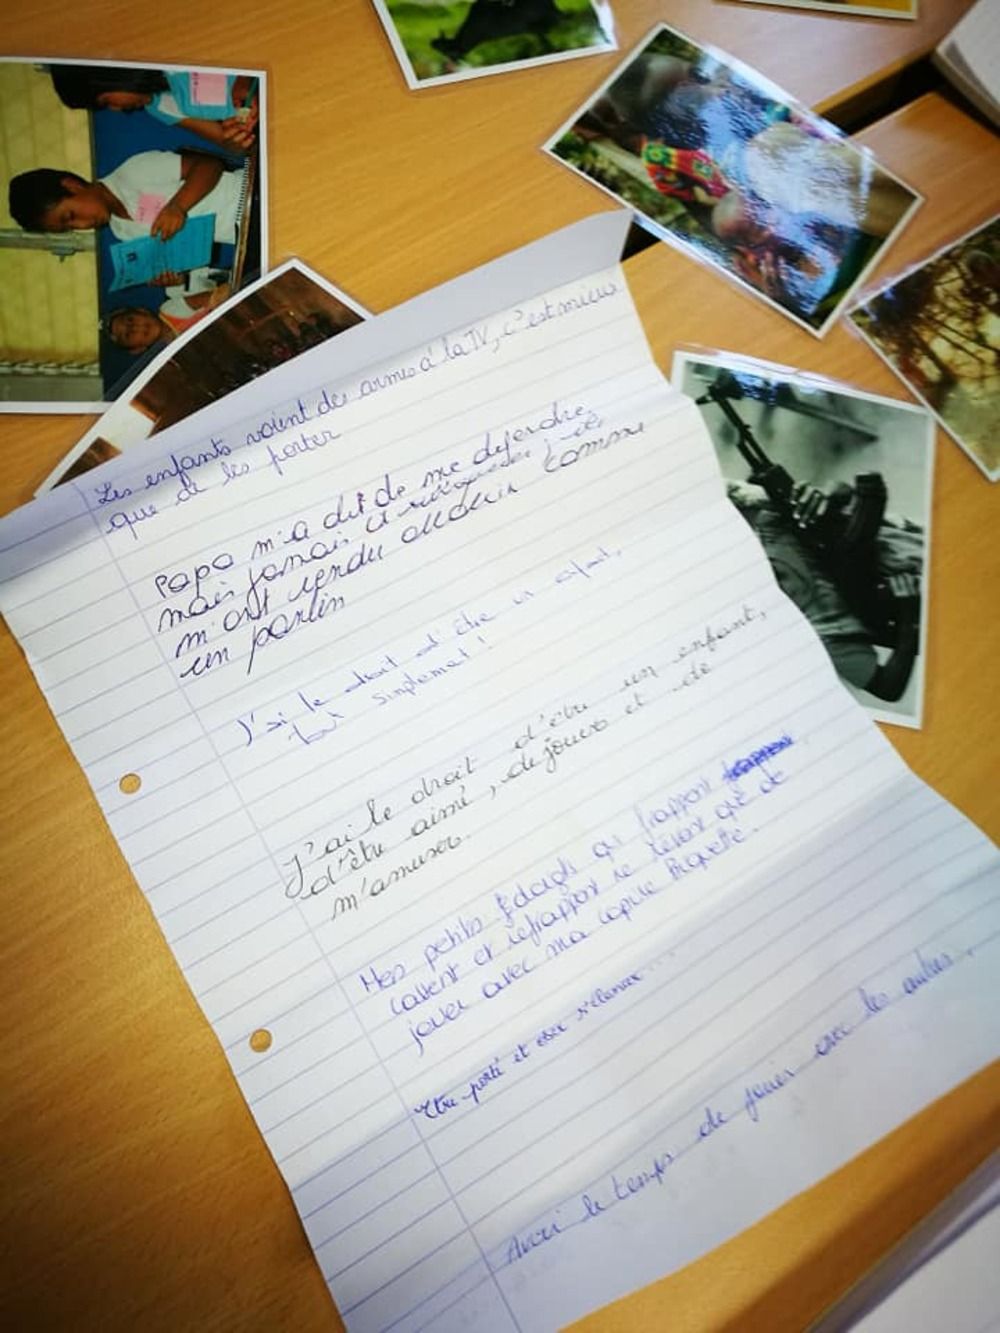 Les enfants voient des armes à la TV, c'est mieux
que de les porter
Papa m'a dit de me défendre
mais jamais à
m'ont rendu comme
un pantin
J'ai le droit d'être un enfant,
tout simplement !
J'ai le droit d'être un enfant,
d'être aimé, de jouer et de
m'amuser.
Mes petits doigts qui frappent
cousent et refrappent ne rêvent que de
jouer avec ma copine Biquette.
Être porté et oser s'élancer...
Avoir le temps de jouer avec les autres.